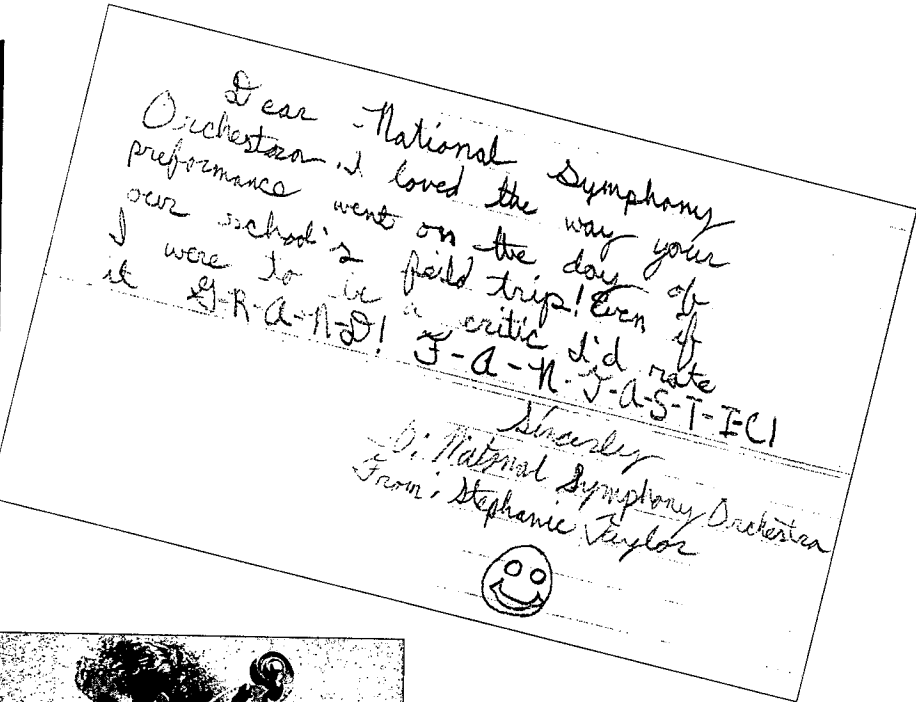 Dear National Symphony
Orchestra. I loved the way your
preformance went on the day of
our school's feild trip! Even if
I were to be a critic I'd rate
it G-R-A-N-D! F-A-N-T-A-S-T-I-C!
Sincerley
To: National Symphony Orchestra
From: Stephanie Taylor